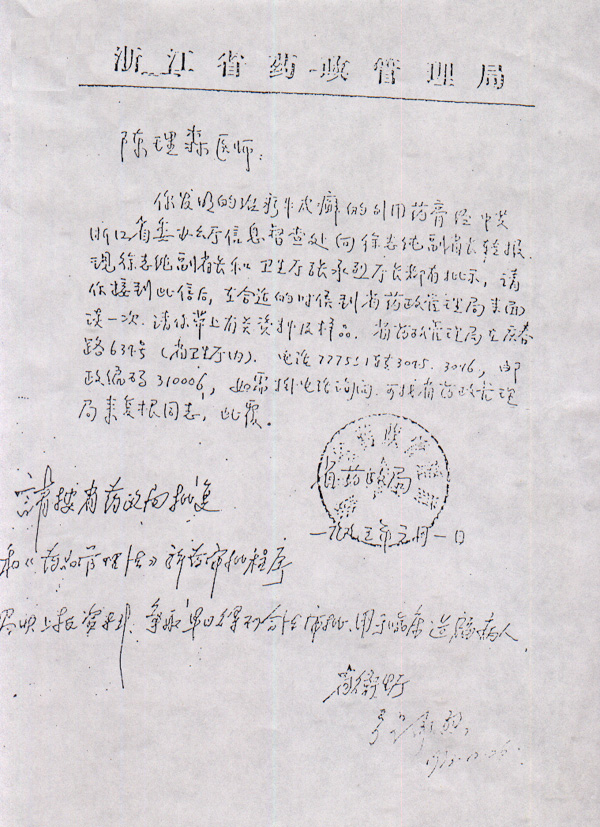 浙江省药政管理局
陈理森医师:
你发明的治疗牛皮癣的外用药膏经中共
浙江省委办公厅信息督查处向徐志纯副省长转报.
现徐志纯副省长和卫生厅张承烈厅长都有批示,请
你接到此信后,在合适的时候到省药政管理局来面
谈一次.请你带上有关资料及样品.省药政管理局在庆春
路639号(省卫生厅内).电话 777511转3095.3096,邮
政编码310006,如需挂电话询问.可找省药政管理
局来复根同志,此覆。
省药政局
一九九三年 月一日
請按省药政局批复
和《药品管理法》新药审批程序
尽快上报资料.争取早日得到合法审批.用于临床造福病人.
省衛生厅
张承烈